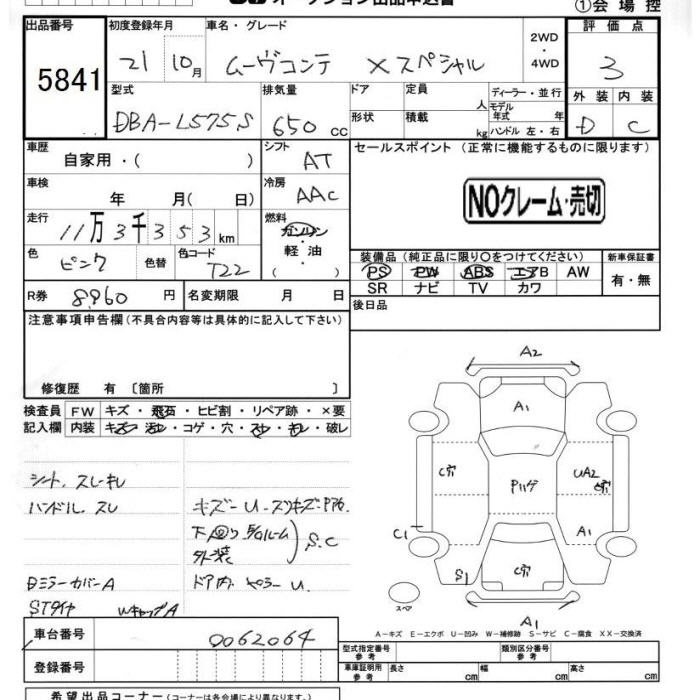 オークション出品申込書
①会場控
出品番号
5841
初度登録年月
21 10月
車名・グレード
ムーヴコンテ Xスペシャル
2WD・4WD
評価点
3
型式
DBA-L575S
排気量
650 cc
ドア
定員
人
ディーラー・並行
モデル年式 年
形状
積載
kg
ハンドル 左・右
外装 内装
D C
車歴
自家用・( )
シフト
AT
セールスポイント (正常に機能するものに限ります)
車検
年 月( 日)
冷房
AAC
NOクレーム・売切
走行
11万3千353km
燃料
ガソリン・軽油
( ・ )
色
ピンク
色替
色コード
T22
装備品 (純正品に限り○をつけてください)
PS PW ABS エアB AW
SR ナビ TV カワ
新車保証書
有・無
R券
8,960円
名変期限 月 日
後日品
注意事項申告欄 (不具合内容等は具体的に記入して下さい)
修復歴 有 〔箇所 〕
検査員記入欄
FW キズ・飛石・ヒビ割・リペア跡・×要
内装 キズ・汚レ・コゲ・穴・スレ・キレ・破レ
シート、スレキレ
ハンドル、スレ
キズー U
下回り
外装
S.C
DミラーカバーA
ドア内 U.
STタイヤ
WキャップA
A2
A1
C穴
UA2
C1
A1
S1
C穴
スペア
A1
A-キズ E-エクボ U-凹み W-補修跡 S-サビ C-腐食 XX-交換済
車台番号
0062064
登録番号
型式指定番号 参考
類別区分番号 参考
車庫証明用 参考
長さ cm
幅 cm
高さ cm
希望出品コーナー (コーナーは各会場により異なります。)